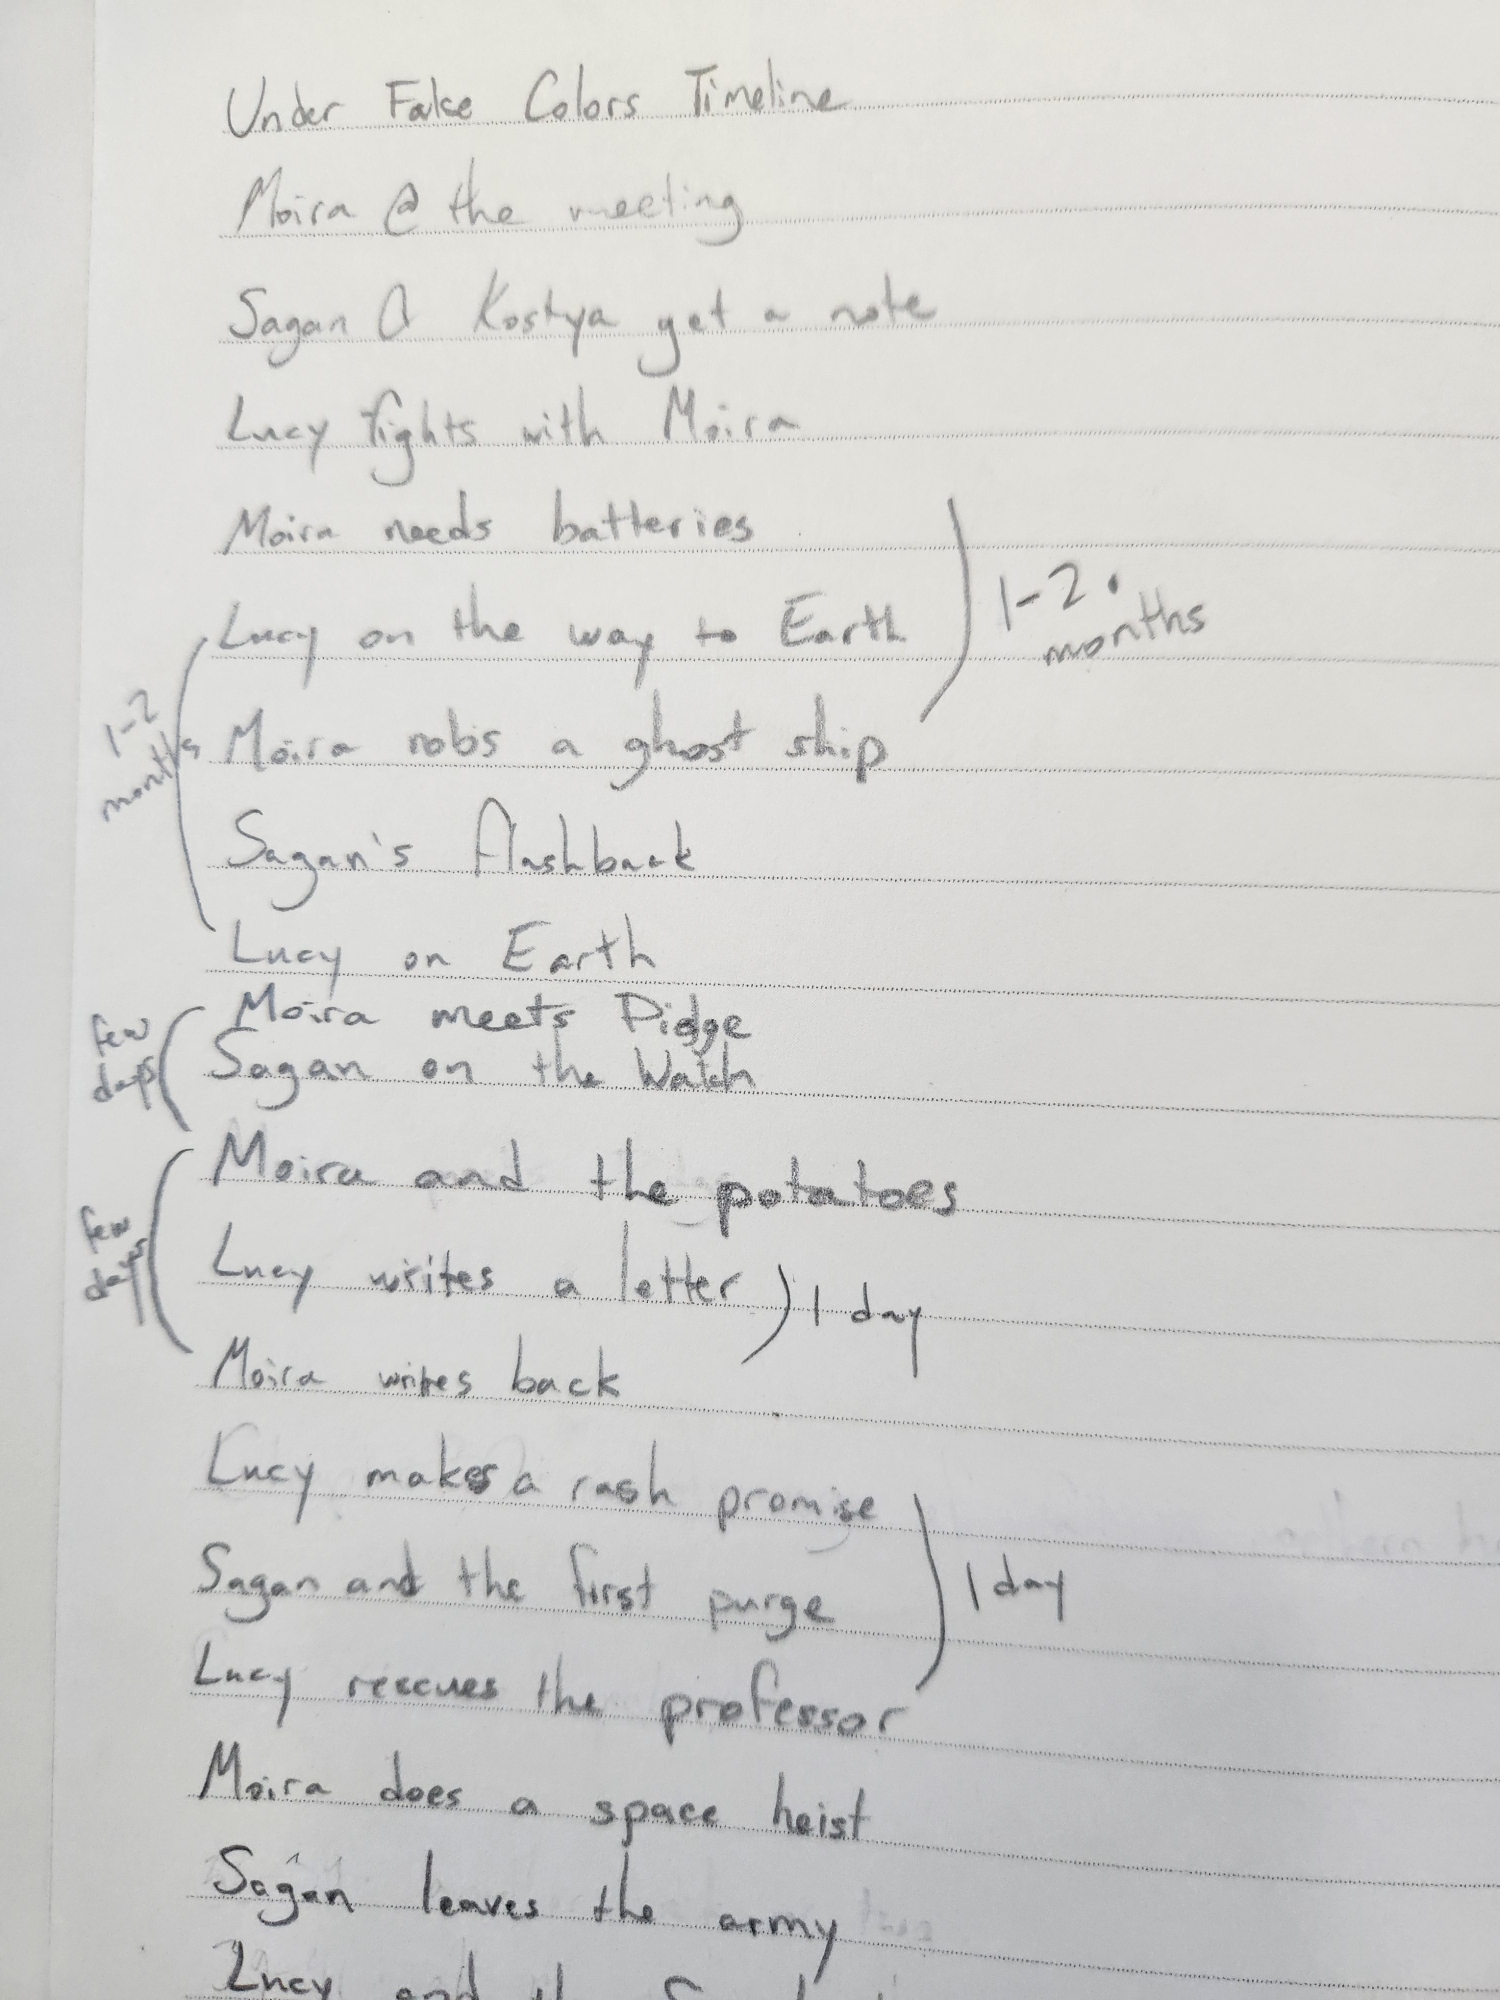 Under False Colors Timeline
Moira @ the meeting
Sagan & Kostya get a note
Lucy fights with Moira
Moira needs batteries
Lucy on the way to Earth
1-2
months
Moira robs a ghost ship
1-2
months
Sagan's flashback
Lucy on Earth
Moira meets Pidge
few
days
Sagan on the Watch
Moira and the potatoes
few
days
Lucy writes a letter
1 day
Moira writes back
Lucy makes a rash promise
Sagan and the first purge
1 day
Lucy rescues the professor
Moira does a space heist
Sagan leaves the army
Lucy and the